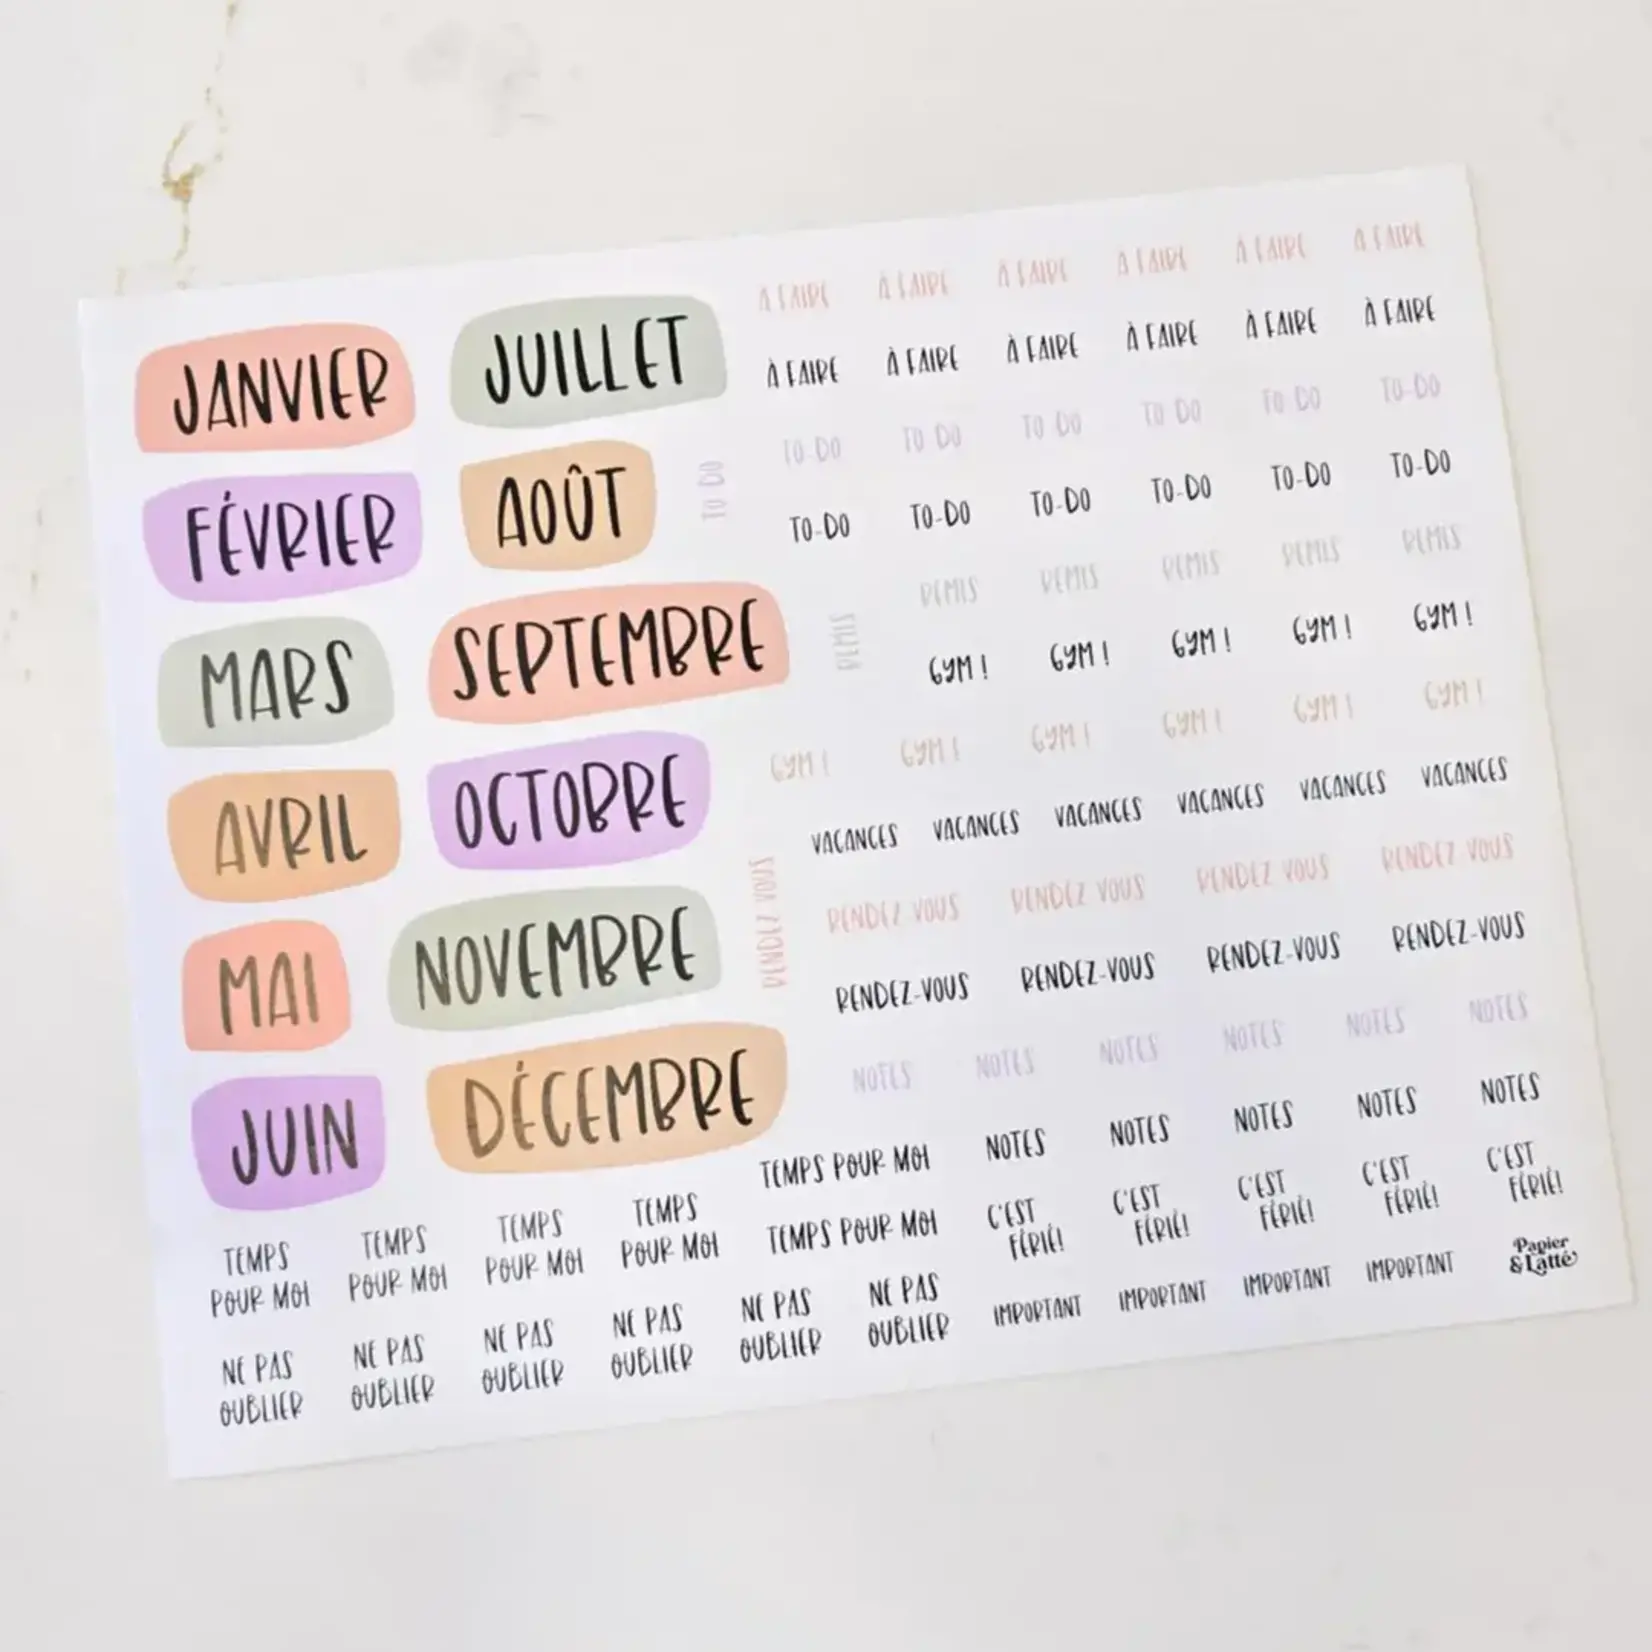 JANVIER
JUILLET
FÉVRIER
AOÛT
MARS
SEPTEMBRE
AVRIL
OCTOBRE
MAI
NOVEMBRE
JUIN
DÉCEMBRE
À FAIRE À FAIRE À FAIRE À FAIRE À FAIRE À FAIRE
À FAIRE À FAIRE À FAIRE À FAIRE À FAIRE À FAIRE
TO-DO TO-DO TO-DO TO-DO TO-DO TO-DO
TO-DO
TO-DO TO-DO TO-DO TO-DO TO-DO TO-DO
REMIS REMIS REMIS REMIS REMIS
REMIS
GYM ! GYM ! GYM ! GYM ! GYM !
GYM ! GYM ! GYM ! GYM ! GYM ! GYM !
VACANCES VACANCES VACANCES VACANCES VACANCES VACANCES
RENDEZ-VOUS
RENDEZ-VOUS RENDEZ-VOUS RENDEZ-VOUS RENDEZ-VOUS
RENDEZ-VOUS RENDEZ-VOUS RENDEZ-VOUS RENDEZ-VOUS
NOTES NOTES NOTES NOTES NOTES NOTES
TEMPS POUR MOI
NOTES NOTES NOTES NOTES NOTES
TEMPS POUR MOI
C'EST C'EST C'EST C'EST C'EST
FÉRIÉ! FÉRIÉ! FÉRIÉ! FÉRIÉ! FÉRIÉ!
TEMPS TEMPS TEMPS TEMPS
POUR MOI POUR MOI POUR MOI POUR MOI
NE PAS NE PAS NE PAS NE PAS NE PAS NE PAS
OUBLIER OUBLIER OUBLIER OUBLIER OUBLIER OUBLIER
IMPORTANT IMPORTANT IMPORTANT IMPORTANT
Papier
&Latté